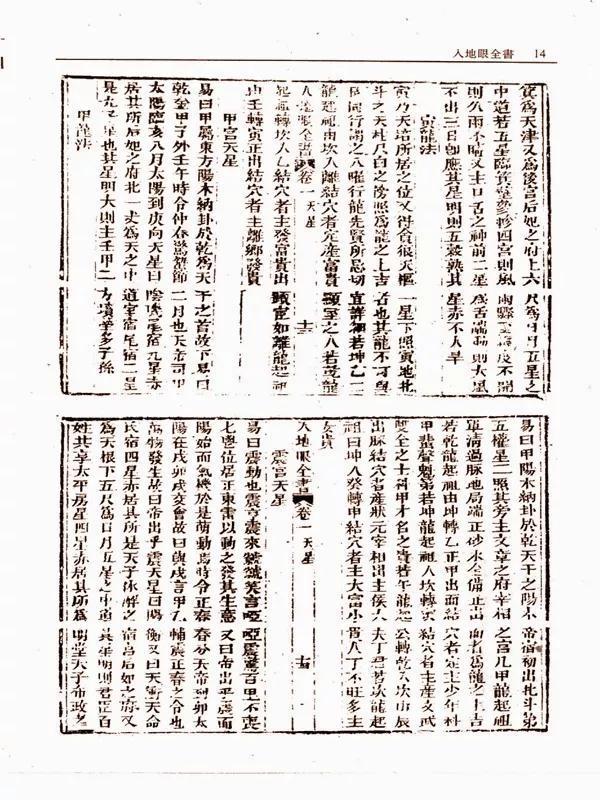 入地眼全書 14
為天津又為後宮后妃之府上六尺為日月五星之
中道若五星臨箕壁翼軫四宮則風雨驟至度不開
則久雨不晴又主口舌之神前二星為舌端動則大風
不出三日卽應其星明則五穀熟其星赤不大旱
寅龍法
寅乃天培所居之位又得貪狼天樞一星下照寅地北
斗之天柱尺白之傍照為龍之上吉者也其龍不可與
艮同行謂之八曜行龍先賢所忌切宜詳細若坤乙二
龍起祖由坎入離結穴者定產富貴顯至之八若乾龍
入地眼全書 卷一 天星 十三
起祖轉坎入乙結穴者主發富貴出顯宦如離龍起祖
由壬轉寅正出結穴者主離鄉發貴
甲宮天星
易曰甲屬東方陽木納卦於乾為天干之首故下易曰
乾金甲子外壬午時令仲春驚蟄節二月也天帝司甲
太陽臨亥八月太陽到庚向天星曰陰璣尾宿九星赤
居其所后妃之府北一丈為天之中道室宿尾宿二星
是九子星也其星明大則主壬甲二方墳塋多子孫
甲龍法
易曰甲陽木納卦於乾天干之陽水帝宿初出北斗第
五權星二照其旁主文章之府宰相之宮凡甲龍起祖
單清過脉地局端正砂水全備正出面者為龍之上吉
若乾龍起祖由坤轉乙正甲出面結穴者定主少年科
甲蜚聲魁第若坤龍起祖入坎轉結穴者主產文武
雙全之士科甲才名之貴若午龍起公轉乾入坎由辰
出脉結穴者產狀元宰相出主侯人夫丁君若坎龍起
祖由坤入癸轉甲結穴者主大富小貴八丁不旺多主
女貴
入地眼全書 卷一 天星
震宮天星
易曰震動也震亨震來虩虩笑言啞啞震驚百里不喪
匕鬯位居正東雷以動之發其生意又曰帝出乎震而
陽始而氣機於是萌動焉時令正春春分天帝到卯太
陽在戌卯戌交會故曰與戌合甲乙輔震正春之令也
萬物發生故曰帝出乎震天星曰陽衡又曰天衝天命
氐宿四星赤居其所是天子休解之宿宮后妃之府又
為天根下五尺為日月五星之中道其星明則君臣百
姓共享太平房星四星赤居其所為明堂天子布政之